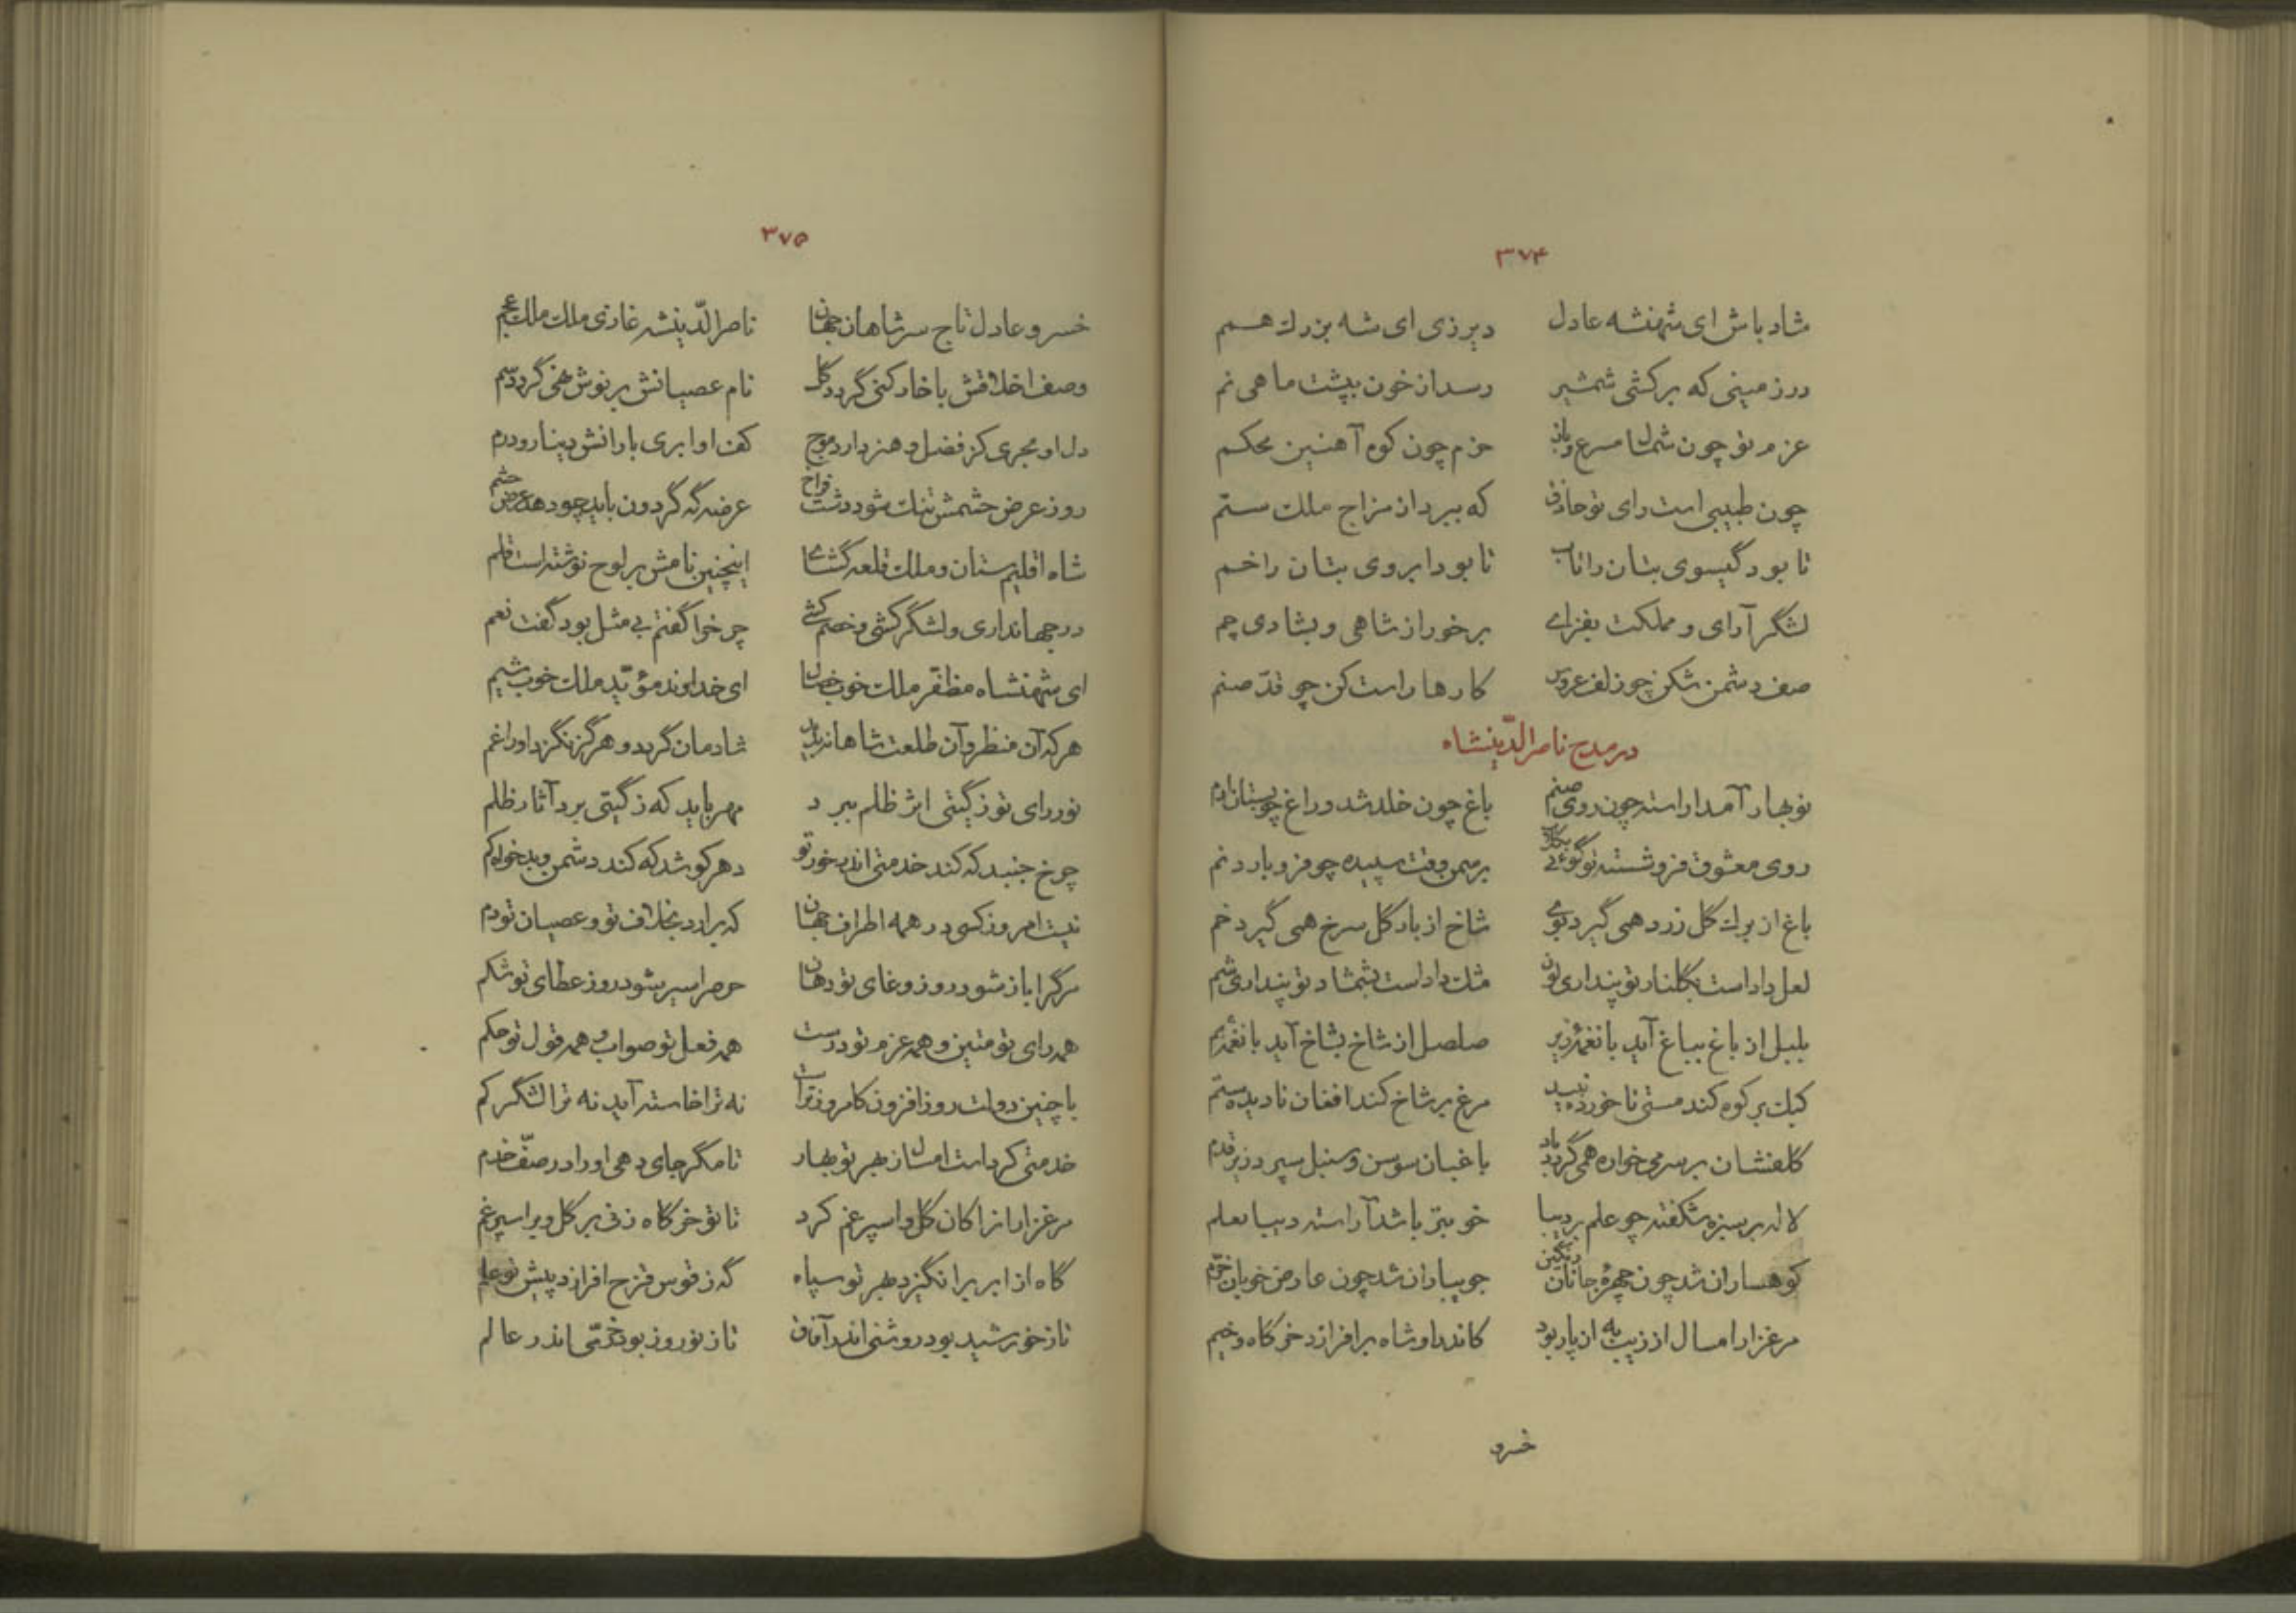 ۳۷۴
شاد باش ای شهنشه عادل دیر زی ای شه بزرك همم
در زمینی که برکشی شمشیر رسد از خون بپشت ماهی نم
عزم تو چون شمال مسرع و باد حزم چون کوه آهنین محکم
چون طبیبی است رای تو حاذق که ببرد از مزاج ملك ستم
تا بود گیسوی بتان را تاب تا بود ابروی بتان را خم
لشگر آرای و مملکت بفزای برخور از شاهی و بشادی چم
صف دشمن شکن چو زلف عروس کارها راست کن چو قدّ صنم
در مدح ناصرالدّینشاه
نوبهار آمد اراسته چون روی صنم باغ چون خلد شد و راغ چو بستان ارم
روی معشوق فروشسته تو گوئی برسمن وقت سپیده چو فرو بارد نم
باغ از برك گل زرد همی گیرد بوی شاخ از بار گل سرخ همی گیرد خم
لعل داداست بگلنار تو پنداری لون مشك داداست بشمشاد تو پنداری شم
بلبل از باغ بباغ آید با نغمهٔ زیر صلصل از شاخ بشاخ آید با نغمهٔ بم
کبك بر کوه کند مستی ناخورده نبید مرغ بر شاخ کند افغان نادیده ستم
گلفشان بر سر می خواره همی گردد باد باغبان سوسن و سنبل سپرد زیر قدم
لاله بر سبزه شکفته چو علم بر دیبا خوبتر باشد آراسته دیبا بعلم
کوهساران شد چون چهرهٔ جانان رنگین جویباران شد چون عارض خوبان خرّم
مرغزار امسال از زیب به از پار بود کاندرو شاه برافرازد خرگاه و خیم
خسرو
۳۷۵
خسرو عادل تاج سر شاهان جهان ناصرالدّینشه غازی ملك ملك عجم
وصف اخلاقش با خار کنی گردد گل نام عصیانش بر نوش نهی گردد سم
دل او بحری کز فضل و هنر دارد موج کف او ابری بارانش دینار و درم
روز عرض حشمش تنك شود دشت فراخ عرضه گه گردون باید چو دهد عرض حشم
شاه اقلیم ستان و ملك قلعه گشای اینچنین نامش بر لوح نوشته است قلم
در جهانداری و لشگر کشی و خصم کشی چرخ را گفتم بی مثل بود گفت نعم
ای شهنشاه مظفّر ملك خوب خصال ای خداوند مؤیّد ملك خوب شیم
هر که آن منظر و آن طلعت شاهانه بدید شادمان گردد و هرگز نگزد او را غم
نور رای تو ز گیتی اثر ظلم ببرد مهر باید که ز گیتی برد آثار ظلم
چرخ جنبد که کند خدمتی اندر خور تو دهر کوشد که کند دشمن و بدخواه کم
نیست امروز کسی در همه اطراف جهان که برارد بخلاف تو و عصیان تو دم
مرگ را باز شود روز وغای تو دهان حرص را سیر شود روز عطای تو شکم
همه رای تو متین و همه عزم تو درست همه فعل تو صواب و همه قول تو حکم
با چنین دولت روز افزون کامروز تراست نه ترا خاسته آید نه ترا لشگر کم
خدمتی کرد است امسال ز بهر تو بهار تا مگر جای دهی او را در صفّ خدم
مرغزار انرا کان گل و اسپرغم کرد تا تو خرگاه زنی بر گل و بر اسپرغم
گاه از ابر برانگیزد بهر تو سپاه گه ز قوس قزح افرازد پیش تو علم
تا ز خورشید بود روشنی اندر آفاق تا ز نوروز بود خرّمی اندر عالم